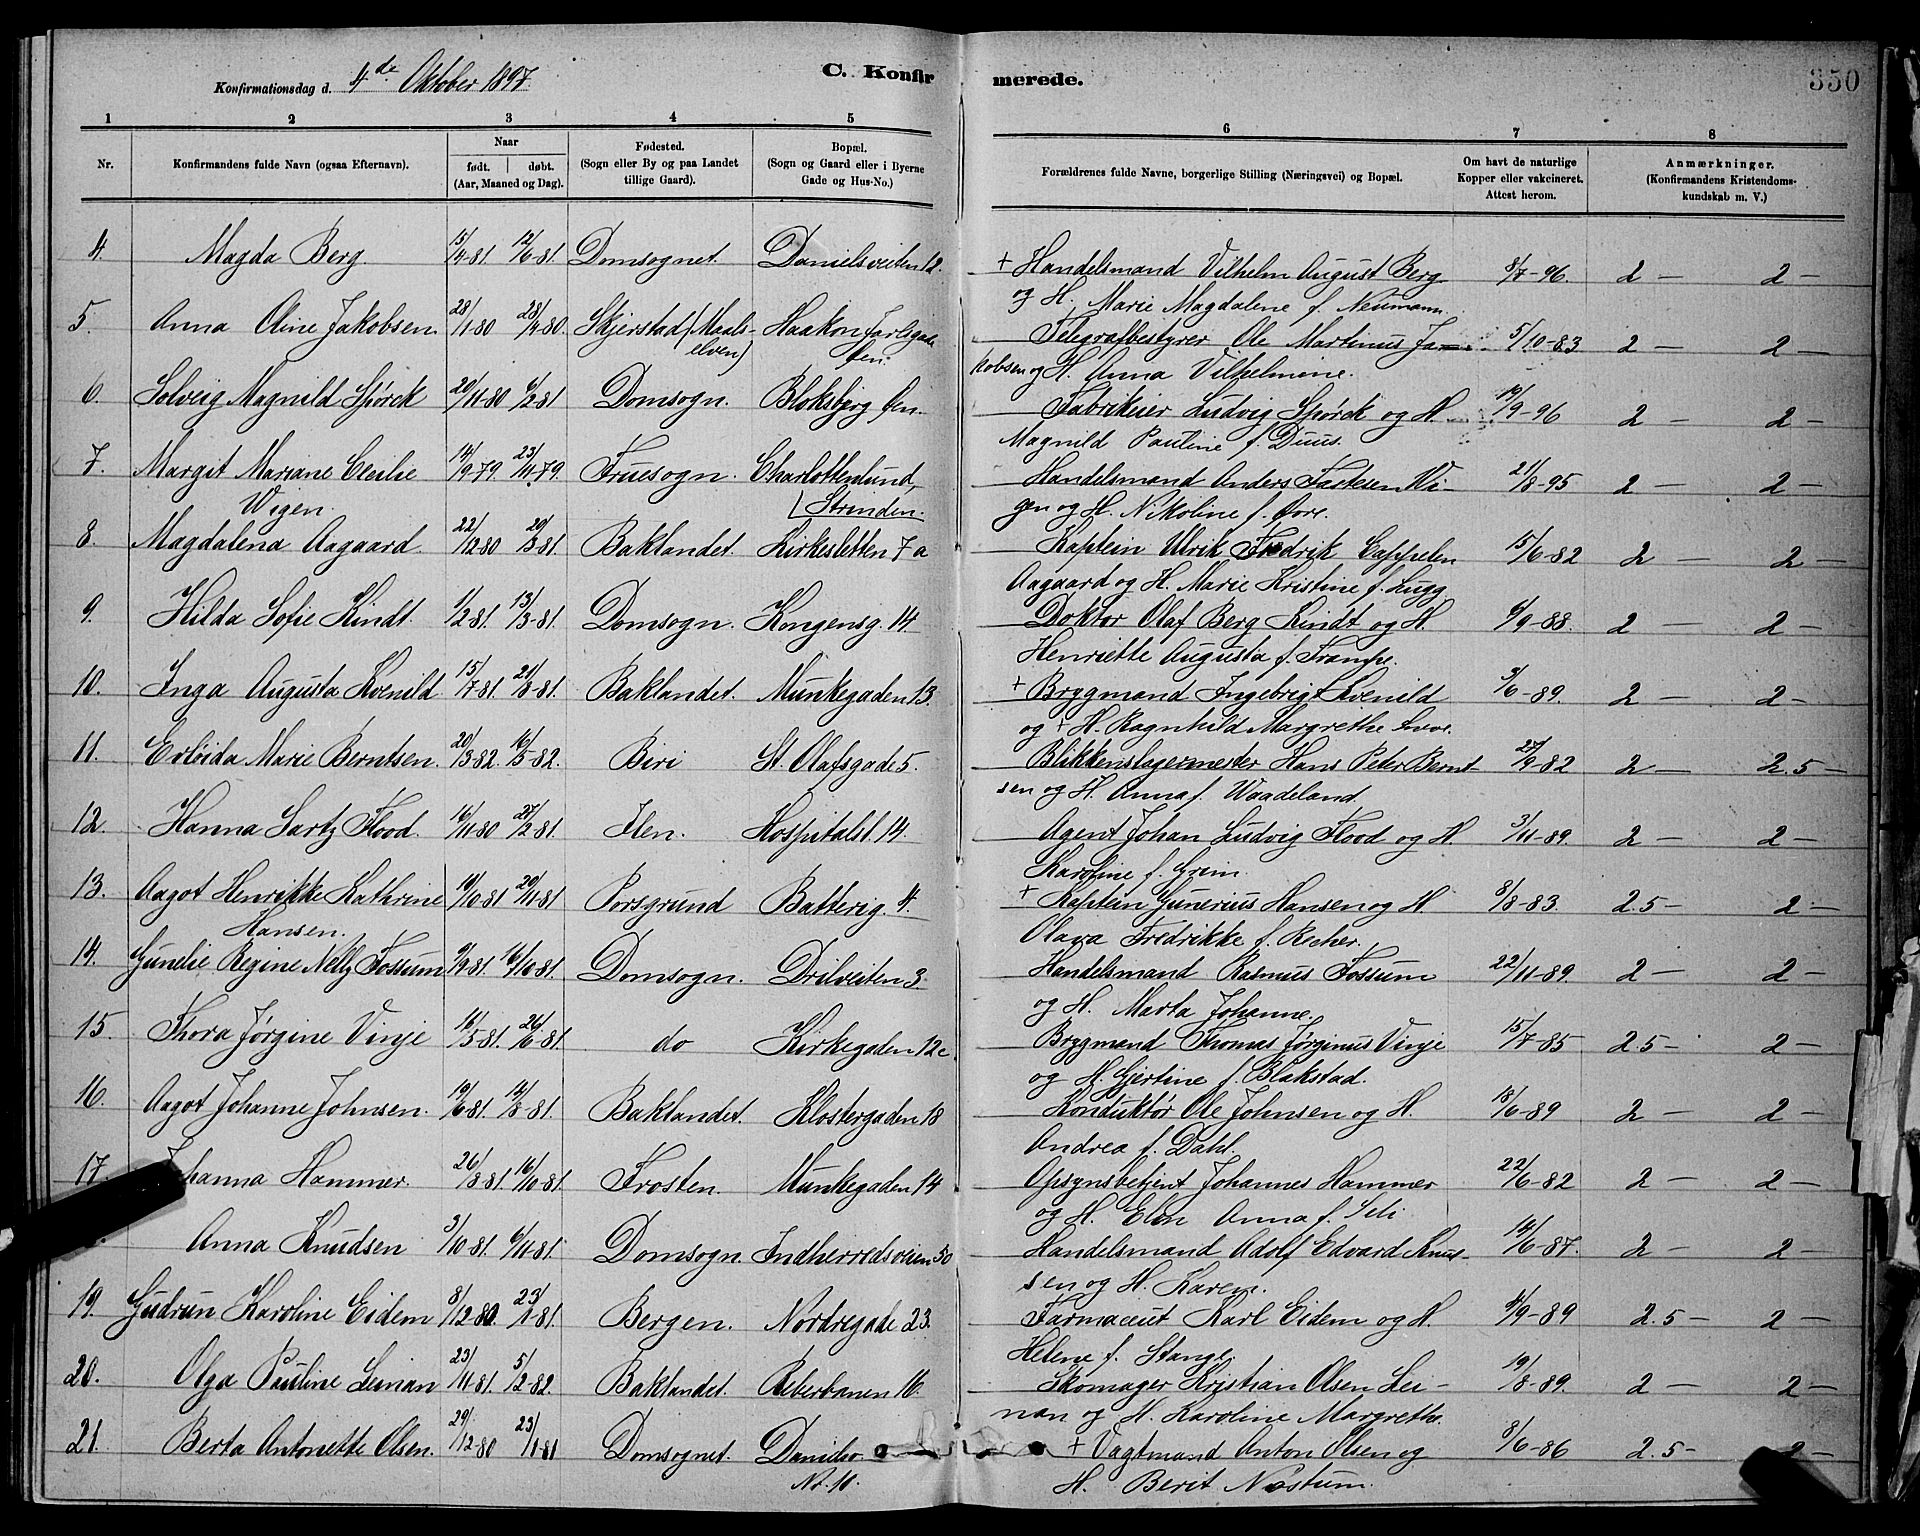 Konfirmationsdag d. 4de Oktober 1897.
C. Konfirmerede.
350
1 2 3 4 5 6 7 8
Nr.
Konfirmandens fulde Navn (ogsaa Efternavn).
Naar
født. døbt.
(Aar, Maaned og Dag).
Fødested.
(Sogn eller By og paa Landet
tillige Gaard).
Bopæl.
(Sogn og Gaard eller i Byerne
Gade og Hus-No.)
Forældrenes fulde Navne, borgerlige Stilling (Næringsvei) og Bopæl.
Om havt de naturlige
Kopper eller vakcineret.
Attest herom.
Anmærkninger.
(Konfirmandens Kristendoms-
kundskab m. V.)
4. Magda Berg. 15/4-81. 12/6-81. Domsognet. Danielsveiten 12. + Handelsmand Vilhelm August Berg 8/7-96. 2 — 2 —
og H. Marie Magdalene f. Neumann.
5. Anna Oline Jakobsen. 28/1-80 28/4-80. Skjerstad (Maals- Haakon Jarlsgade Telegrafbestyrer Ole Martinus Ja- 5/10-83 2 — 2 —
elven) Øen. kobsen og H. Anna Vilhelmine.
6. Solveig Magnild Spørck 20/11-80 6/2-81 Domsogn. Bloksberg Øen. Fabrikeier Ludvig Spørck og H. 19/9-96 2 — 2 —
Magnild Pauline f. Duus.
7. Margit Mariane Cecilie 14/9-79. 23/11-79. Fruesogn. Charlottenlund, Handelsmand Anders Wi- 21/8-95 2 — 2 —
Wigen. Strinden. gen og H. Nikoline f.
8. Magdalena Aagaard. 22/12-80 20/3-81. Baklandet. Kirkesletten 7a Kaptein Ulrik Fredrik Cappelen 15/6-82 2 — 2 —
Aagaard og H. Marie Kristine f. Lugg.
9. Hilda Sofie Kindt. 1/2-81. 13/3-81. Domsogn. Kongensg. 14. Doktor Olaf Berg Kindt og H. 6/9-88. 2 — 2 —
Henriette Augusta f.
10. Inga Augusta Kvenild 15/7-81. 21/8-81. Baklandet. Munkegaden 13. + Brygmand Ingebrigt Kvenild 3/6-89. 2 — 2 —
og + H. Ragnhild Margrethe
11. Marie Berntsen. 20/3-82. 16/5-82. Biri St. Olafsgade 5. Blikkenslagermester Hans Peter Bernt- 27/9-82 2 — 2.5 —
sen og H. Anna f. Waadeland.
12. Hanna Lartz Flood. 16/11-80 27/2-81. Ilen. Hospitalsl. 14. Agent Johan Ludvig Flood og H. 3/11-89. 2 — 2 —
Karoline f. Grim.
13. Aagot Henrikke Kathrine 10/10-81 20/11-81 Porsgrund Batterig. 4. + Kaptein Gunerius Hansen og H. 8/8-83. 2.5 — 2 —
Hansen. Olava Fredrikke f.
14. Gunelie Regine Nelly Fossum 9/9-81. 16/10-81. Domsogn. Drilveiten 3. Handelsmand Rasmus Fossum 22/11-89. 2 — 2 —
og H. Marta Johanne.
15. Thora Jørgine Vinje 16/5-81. 26/6-81. do Kirkegaden 12c. Brygmand Thomas Jørginus Vinje 15/7-85 2.5 — 2 —
og H. Gjertine f. Blakstad.
16. Aagot Johanne Johnsen. 19/6-81. 14/8-81. Baklandet. Klostergaden 18 Konduktør Ole Johnsen og H. 18/6-89 2 — 2 —
Andrea f. Dahl.
17. Johanna Hammer. 26/8-81. 16/10-81. Frosten. Munkegaden 14 Opsynsbetjent Johannes Hammer 22/6-82 2 — 2 —
og H. Elen Anna f. Seli
Anna Knudsen 3/10-81. 6/11-81. Domsogn. Indherredsveien 50 Handelsmand Adolf Edvard Knud- 14/6-87. 2 — 2 —
sen og H. Karen.
19. Gudrun Karoline Eidem 8/12-80. 23/1-81. Bergen. Nordregade 23. Farmaceut Karl Eidem og H. 4/9-89 2.5 — 2 —
Helene f. Stange.
20. Olga Pauline Leinan 23/11-81. 5/2-82. Baklandet. Reberbanen 16. Skomager Kristian Olsen Lei- 19/8-89. 2 — 2 —
nan og H. Karoline Margrethe.
21. Berta Antonette Olsen. 29/12-80 23/1-81 Domsognet. + Vagtmand Anton Olsen og 8/6-86 2.5 - 2 —
No. 10. H. Berit Nøstum.